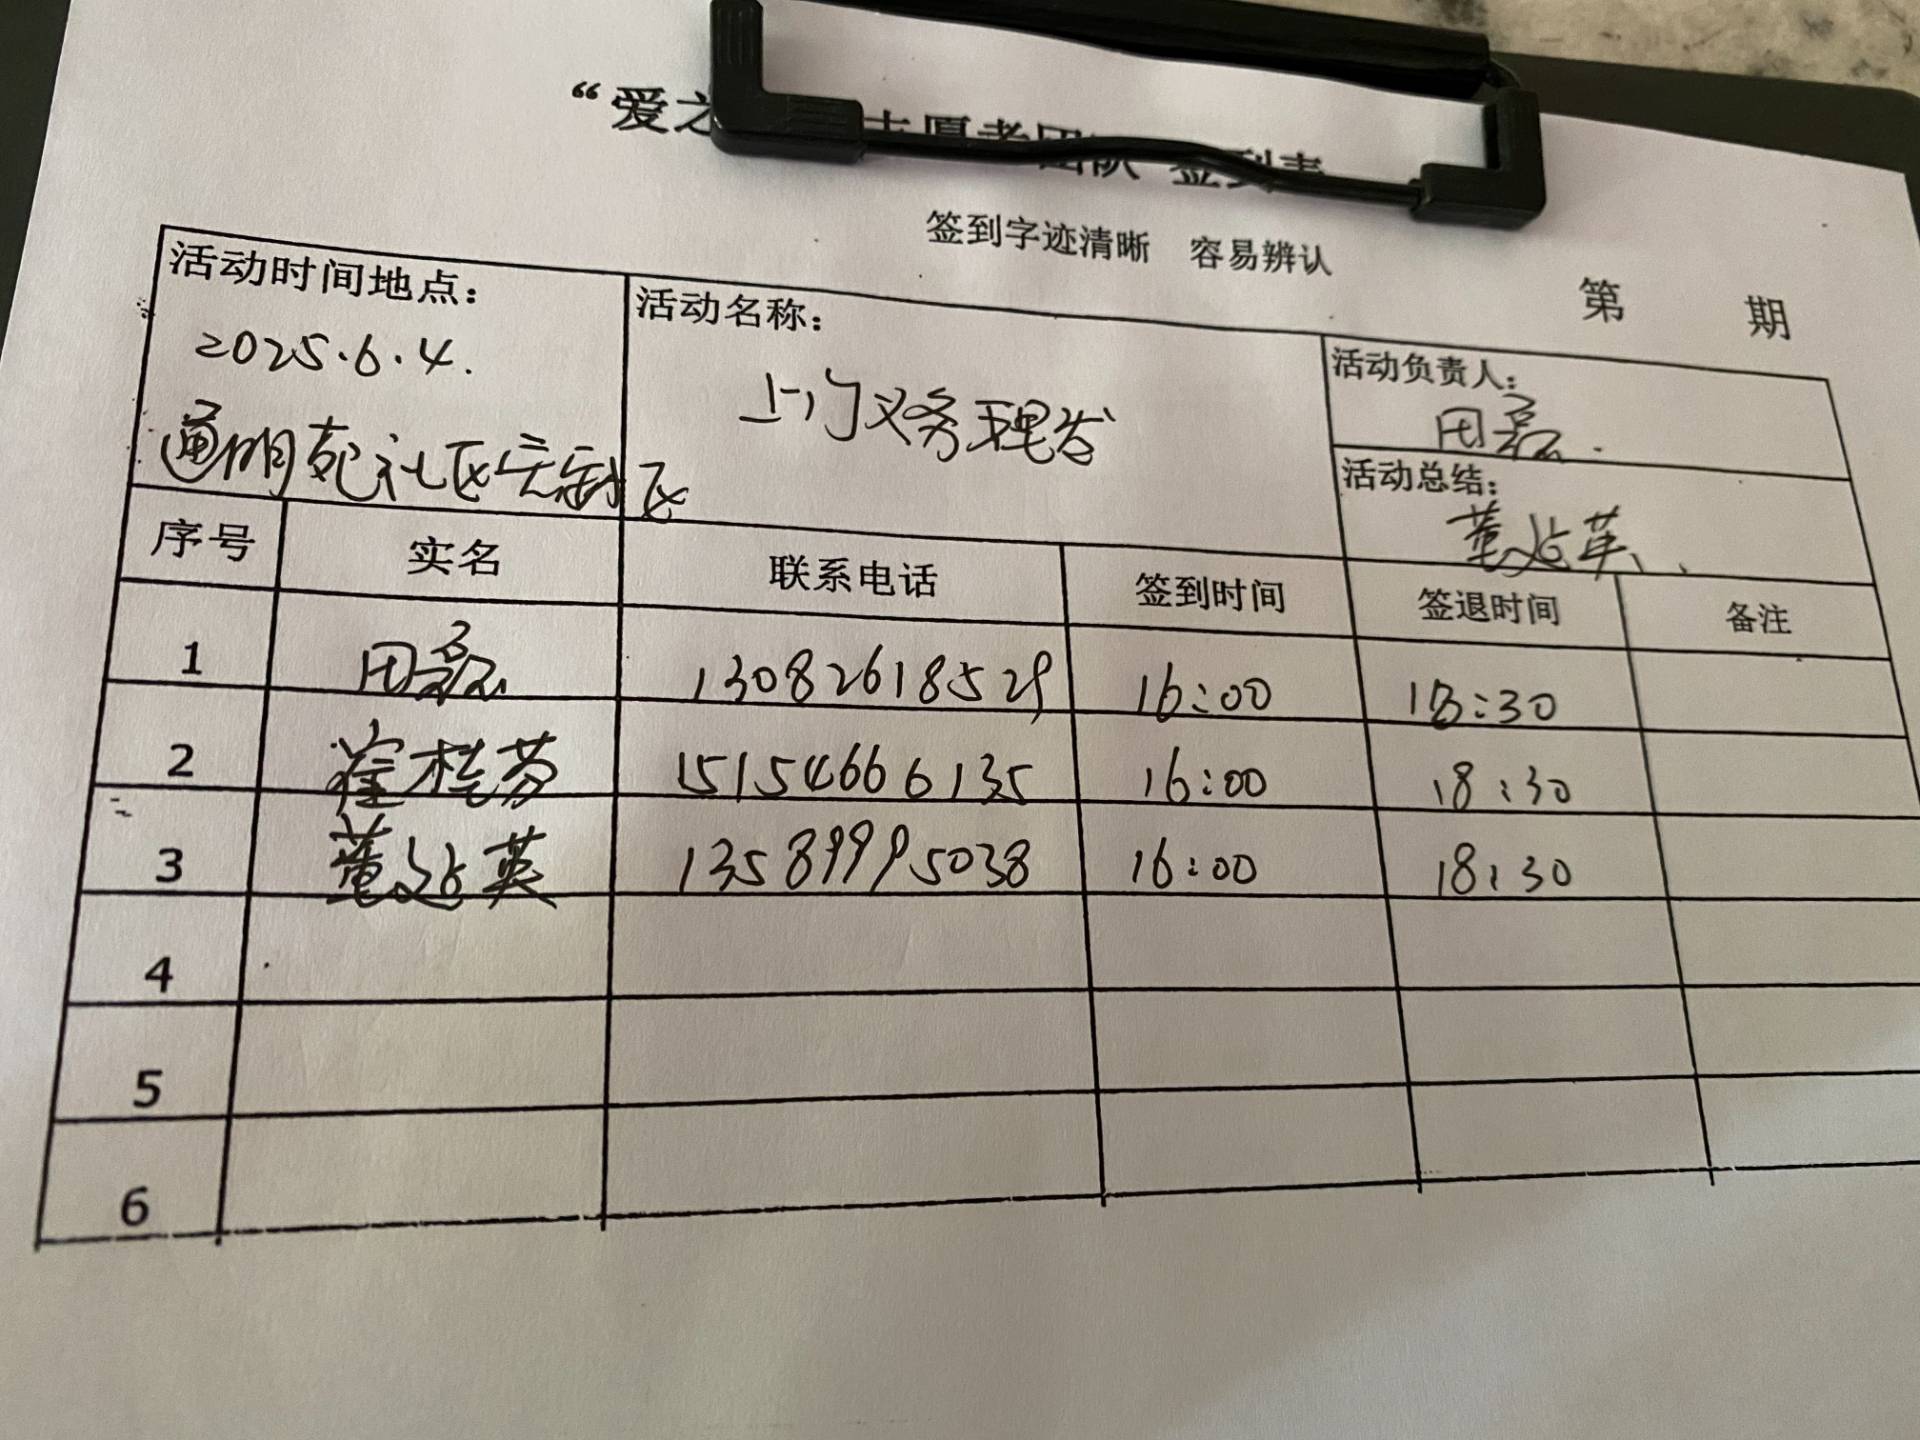 “爱之 志愿者团队 签到表
签到字迹清晰 容易辨认
第 期
活动时间地点：
2025.6.4.
通明苑社区
活动名称：
上门义务理发
活动负责人：
田磊.
活动总结：
董英
序号 实名 联系电话 签到时间 签退时间 备注
1 田磊 13082618529 16:00 18:30
2 桂芬 15154666135 16:00 18:30
3 董英 13589995038 16:00 18:30
4
5
6